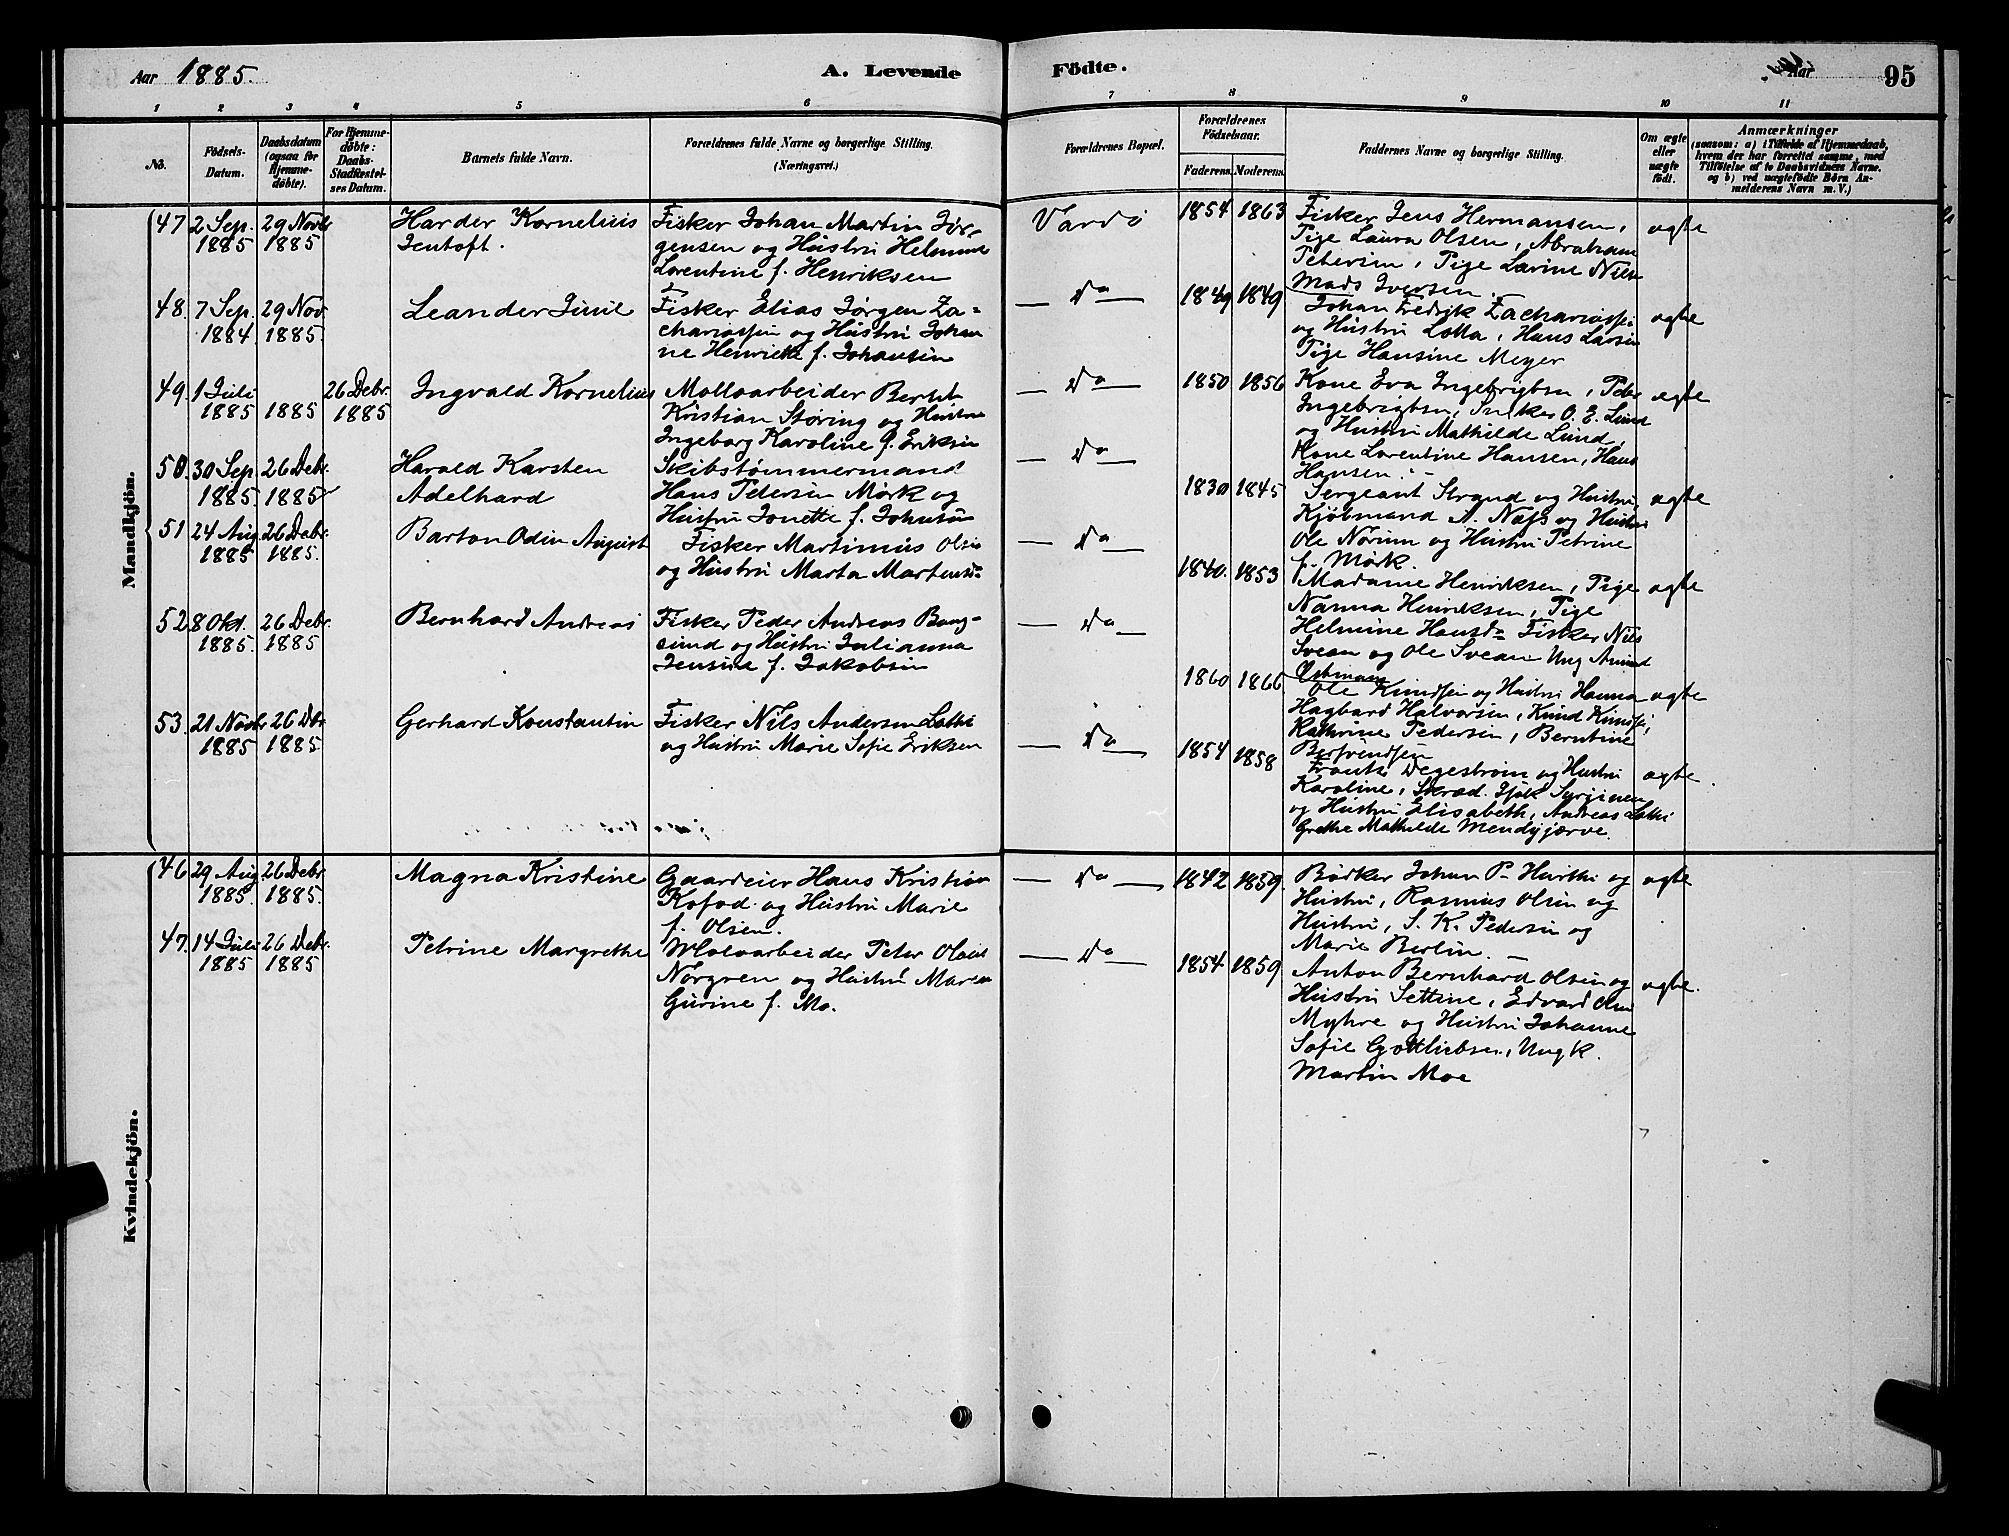 Aar 1885.
A. Levende Födte.
Aar
95
1 2 3 4 5 6 7 8 9 10 11
No.
Födsels-Datum.
Daabsdatum (ogsaa for Hjemmedöbte).
For Hjemmedöbte: Daabs-Stadfæstelses Datum.
Barnets fulde Navn.
Forældrenes fulde Navne og borgerlige Stilling. (Næringsvei.)
Forældrenes Bopæl.
Forældrenes Födselsaar.
Faderens. Moderens.
Faddernes Navne og borgerlige Stilling.
Om ægte eller uægte födt.
Anmærkninger
(saasom: a) i Tilfælde af Hjemmedaab,
hvem der har forrettet samme, med
Tilföielse af to Daabsvidners Navne.
og b) ved uægtefödte Börn Anmelderens Navn m. V.)
Mandkjön.
47 2 Sep. 1885 29 Novbr 1885
Harder Kornelius
Jentoft.
Fisker Johan Martin Jør-
gensen og Hustru Helmine
Lorentine f. Henriksen
Vardø
1854 1863
Fisker Jens Hermansen,
Pige Laura Olsen, Abraham
Petersen, Pige Lavine Nils
Mads Iversen.
ægte
48. 7 Sep. 1884 29 Nov. 1885.
Leander Juul
Fisker Elias Jørgen Za-
chariassen og Hustru Johan
ne Henriette f. Johansen
— Do —
1849 1849
Johan Fredrik Zachariassen
og Hustru Lotta, Hans Larsen
Pige Hansine Meyer
ægte
49. 1 Juli 1885 1885 26 Debr. 1885
Ingvald Kornelius
Moloarbeider Bernt
Kristian Støring og Hustru
Ingeborg Karoline f. Eriksen
— Do —
1850 1856
Kone Eva Ingebrigtsen, Peder
Ingebrigtsen, Sniker O. E. Lund
og Hustru Mathilde Lund,
Kone Lorentine Hansen, Hans
Hansen.
ægte
50. 30 Sep. 1885. 26 Debr. 1885
Harald Karsten
Adelhard
Skibstømmermand
Hans Petersen Mørk og
Hustru Jonette f. Johnsen
— Do —
1830 1845
Sergeant Strand og Hustru,
Kjøbmand A. Næss og Hustru
Ole Norum og Hustru Petrine
f. Mørk.
ægte
51 24 Aug. 1885 26 Debr. 1885.
Barton Odin August
Fisker Martinus Olsen
og Hustru Marta Martinsd.
— Do —
1840. 1853
Madame Henriksen, Pige
Nanna Henriksen, Pige
Helmine Hansd. Fisker Nils
Svean og Ole Svean Ung
ægte
52 8 Okt. 1885. 26 Debr. 1885
Bernhard Andreas
Fisker Peder Andreas Bang-
sund og Hustru Julianna
Jensine f. Jakobsen
— Do —
1860 1866
Ole Knudsen og Hustru Hanna
Hagbard Halvorsen, Knud Knudsen,
Kathrine Pedersen, Berntine
ægte
53. 21 Novbr 1885 26 Dbr. 1885
Gerhard Konstantin
Fisker Nils Andersen Lotki
og Hustru Marie Sofie Eriksen
— Do —
1854 1858
Frants Degestrøm og Hustru
Karoline, Skræd. Isak Syrjinen
og Hustru Elisabeth, Andreas Lotki
Grethe Mathilde Mendyjærve.
ægte
Kvindekjön.
46 29 Aug. 1885. 26 Debr. 1885.
Magna Kristine
Gaardeier Hans Kristian
Kofod. og Hustru Marie
f. Olsen.
— Do —
1842 1859.
Bødker Johan P. Hurtti og
Hustru, Rasmus Olsen og
Hustru, S. K. Pedersen og
Marie Berlin.
ægte
47. 14 Juli 1885 26 Debr. 1885
Petrine Margrethe
Moloarbeider Peter Olaus
Norgren og Hustru Maren
Gurine f. Mo.
— Do —
1854 1859
Anton Bernhard Olsen og
Hustru Settine, Edvard Olsen
Myhre og Hustru Johanne
Sofie Gottliebsen, Ungk.
Martin Moe
ægte.